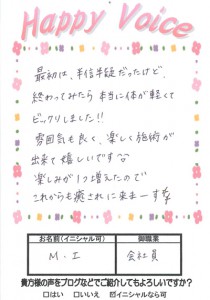 Happy Voice
最初は、半信半疑だったけど、
終わってみたら本当に体が軽くて
ビックリしました!!
雰囲気も良く、楽しく施術が
出来て嬉しいです
楽しみが1つ増えたので
これからも癒されに来まーす
お名前(イニシャル可)
御職業
M・I
会社員
貴方様の声をブログなどでご紹介してもよろしいですか?
□はい □いいえ ☑イニシャルなら可